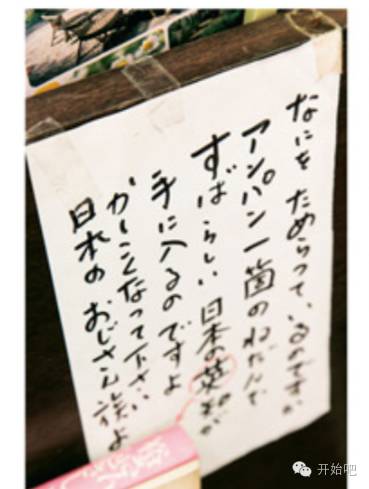 なにを ためらっているのですか
アンパン一箇のねだんで
すばらしい 日本の英知が
手に入るのですよ
かしこくなって下さい
日本の おじさん族よ
开始吧